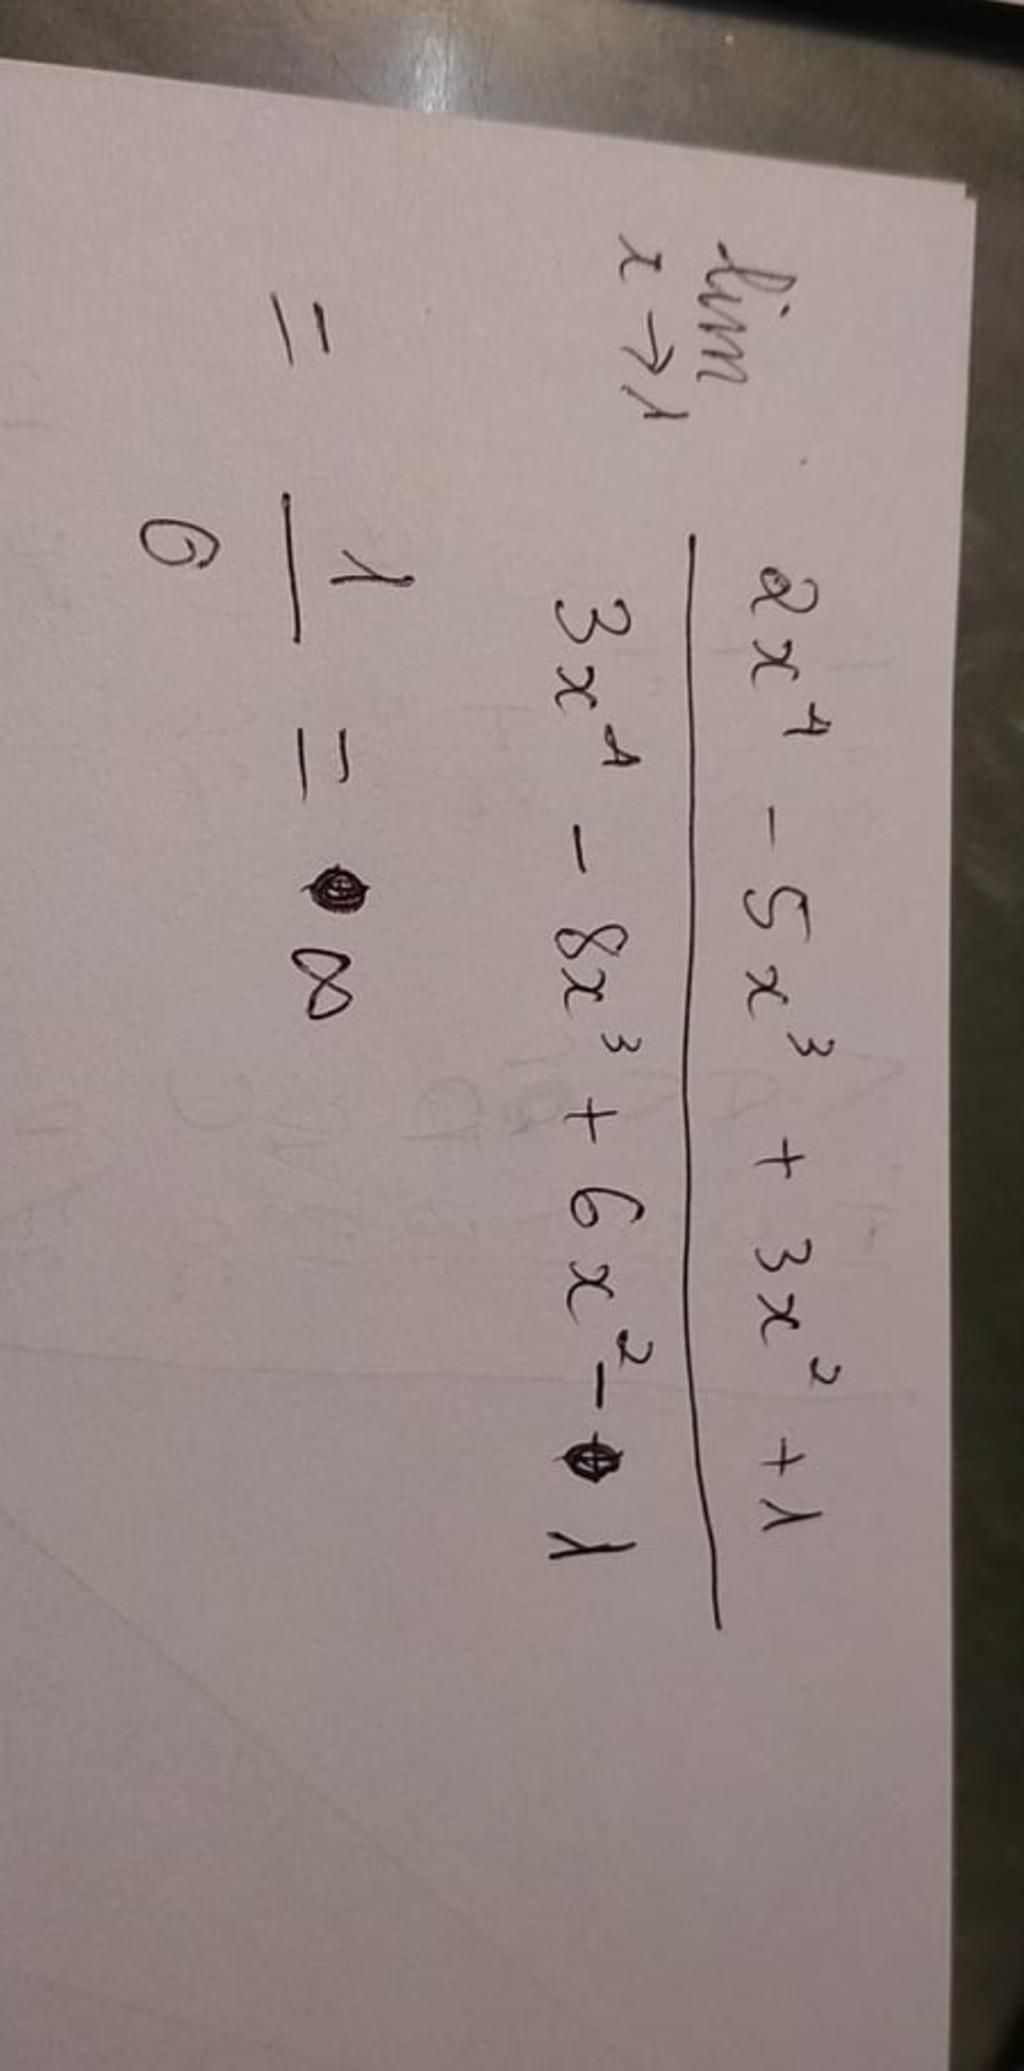 lim 2x⁴ - 5x³ + 3x² + 1
x → 1 3x⁴ - 8x³ + 6x² - 1
= 1/0 = ∞